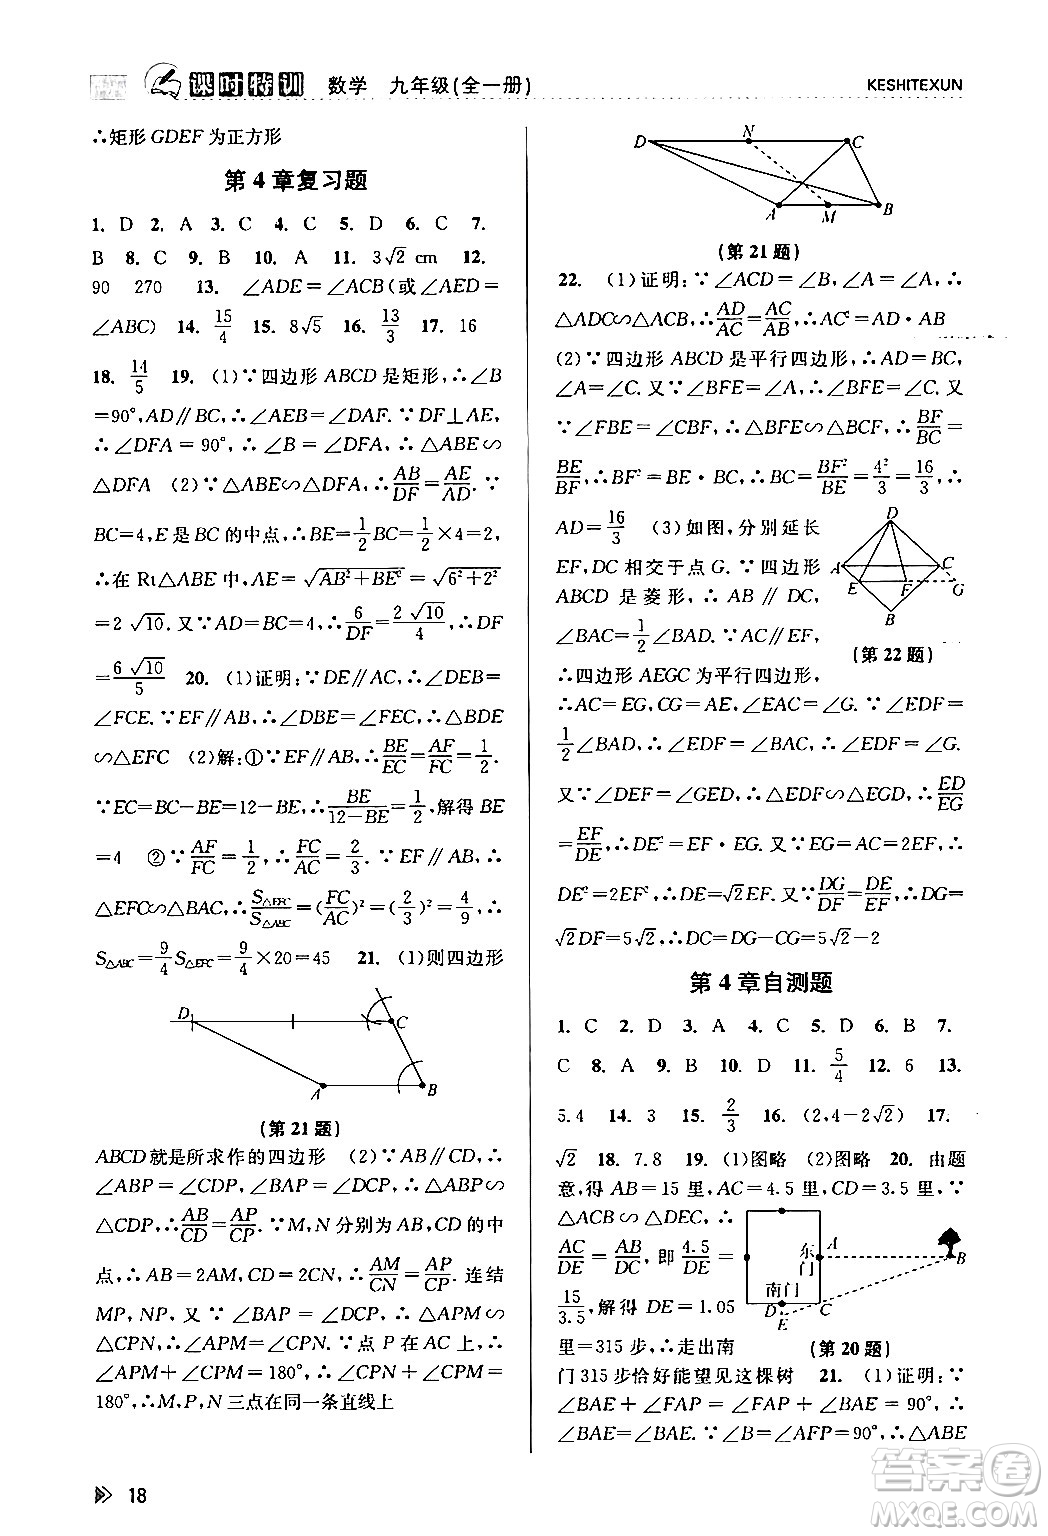 课时特训 数学 九年级(全一册)
KESHITEXUN
∴矩形 GDEF 为正方形
第 4 章复习题
1. D 2. A 3. C 4. C 5. D 6. C 7.
B 8. C 9. B 10. A 11. 3√2 cm 12.
90 270 13. ∠ADE=∠ACB(或∠AED=
∠ABC) 14. 15/4 15. 8√5 16. 13/3 17. 16
18. 14/5 19. (1)∵四边形 ABCD 是矩形,∴∠B
=90°,AD∥BC,∴∠AEB=∠DAF. ∵DF⊥AE,
∴∠DFA=90°,∴∠B=∠DFA,∴△ABE∽
△DFA (2)∵△ABE∽△DFA,∴AB/DF=AE/AD. ∵
BC=4,E 是 BC 的中点,∴BE=1/2BC=1/2×4=2,
∴在 Rt△ABE 中,AE=√(AB²+BE²)=√(6²+2²)
=2√10. 又∵AD=BC=4,∴6/DF=2√10/4,∴DF
=6√10/5 20. (1)证明:∵DE∥AC,∴∠DEB=
∠FCE. ∵EF∥AB,∴∠DBE=∠FEC,∴△BDE
∽△EFC (2)解:①∵EF∥AB,∴BE/EC=AF/FC=1/2.
∵EC=BC-BE=12-BE,∴BE/(12-BE)=1/2,解得 BE
=4 ②∵AF/FC=1/2,∴FC/AC=2/3. ∵EF∥AB,∴
△EFC∽△BAC,∴S△EFC/S△ABC=(FC/AC)²=(2/3)²=4/9,∴
S△ABC=9/4S△EFC=9/4×20=45 21. (1)则四边形
D C A B
(第 21 题)
ABCD就是所求作的四边形 (2)∵AB∥CD,∴
∠ABP=∠CDP,∠BAP=∠DCP,∴△ABP∽
△CDP,∴AB/CD=AP/CP. ∵M,N 分别为 AB,CD 的中
点,∴AB=2AM,CD=2CN,∴AM/CN=AP/CP. 连结
MP,NP,又∵∠BAP=∠DCP,∴△APM∽
△CPN,∴∠APM=∠CPN. ∵点 P 在 AC 上,∴
∠APM+∠CPM=180°,∴∠CPN+∠CPM=
180°,∴M,P,N 三点在同一条直线上
18
D N C A M B
(第 21 题)
22. (1)证明:∵∠ACD=∠B,∠A=∠A,∴
△ADC∽△ACB,∴AD/AC=AC/AB,∴AC²=AD·AB
(2)∵四边形 ABCD 是平行四边形,∴AD=BC,
∠A=∠C. 又∵∠BFE=∠A,∴∠BFE=∠C. 又
∵∠FBE=∠CBF,∴△BFE∽△BCF,∴BF/BC=
BE/BF,∴BF²=BE·BC,∴BC=BF²/BE=4²/3=16/3,∴
AD=16/3 (3)如图,分别延长
EF,DC 相交于点 G. ∵四边形
ABCD 是菱形,∴AB∥DC,
∠BAC=1/2∠BAD. ∵AC∥EF,
∴四边形 AEGC 为平行四边形,
∴AC=EG,CG=AE,∠EAC=∠G. ∵∠EDF=
1/2∠BAD,∴∠EDF=∠BAC,∴∠EDF=∠G.
又∵∠DEF=∠GED,∴△EDF∽△EGD,∴ED/EG
=EF/DE,∴DE²=EF·EG. 又∵EG=AC=2EF,∴
DE²=2EF²,∴DE=√2EF. ∵DG/DF=DE/EF,∴DG=
√2DF=5√2,∴DC=DG-CG=5√2-2
D A C E F G B
(第 22 题)
第 4 章自测题
1. C 2. D 3. A 4. C 5. D 6. B 7.
C 8. A 9. B 10. D 11. 5/4 12. 6 13.
5.4 14. 3 15. 2/3 16. (2,4-2√2) 17.
√2 18. 7.8 19. (1)图略 (2)图略 20. 由题
意,得 AB=15 里,AC=4.5 里,CD=3.5 里,∵
△ACB∽△DEC,∴
AC/DE=AB/DC,即4.5/DE=
15/3.5,解得 DE=1.05
里=315 步,∴走出南
门 315 步恰好能望见这棵树 21. (1)证明:∵
∠BAE+∠FAP=∠FAP+∠EAP=90°,∴
∠BAE=∠EAP. ∵∠B=∠AFP=90°,∴△ABE
东门 A B 南门 D C E
(第 20 题)
答案圈
MXQE.COM